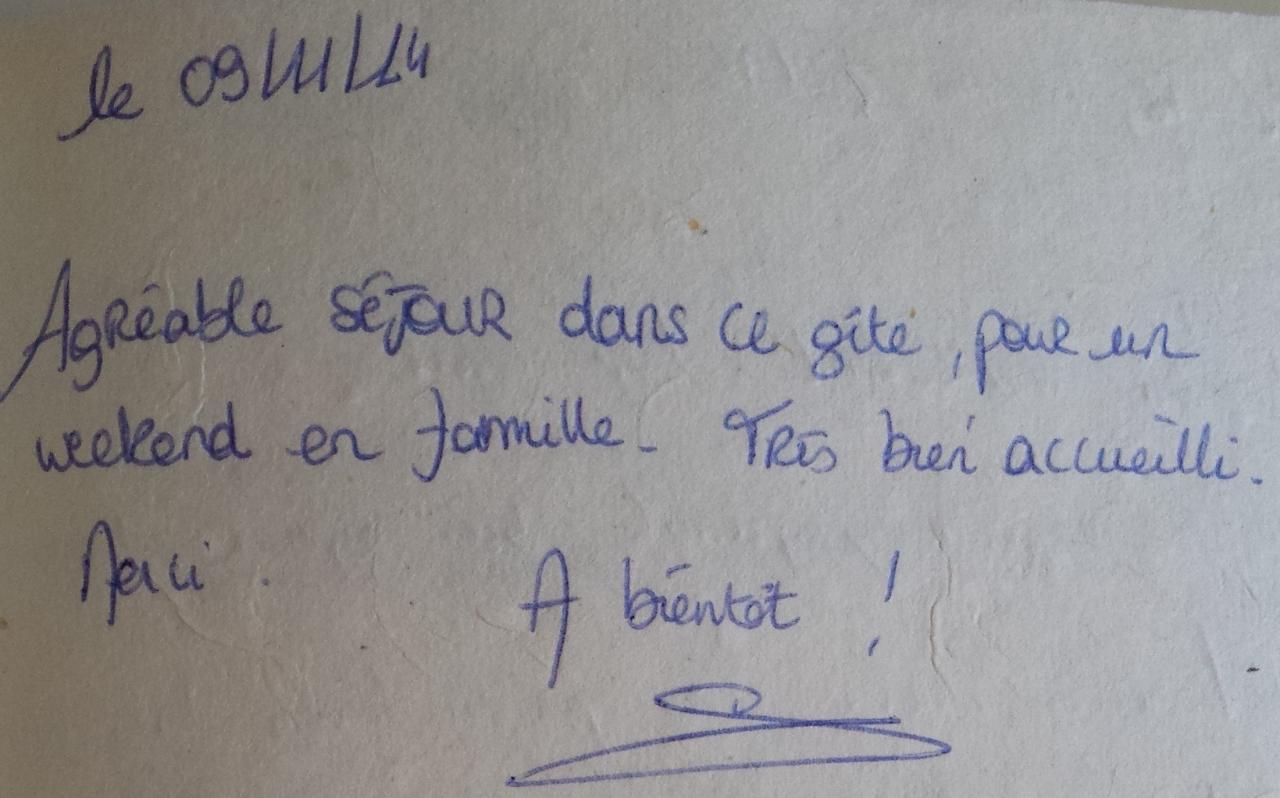 le 09/11/14
Agréable séjour dans ce gîte, pour un
weekend en famille. Très bien accueilli.
Merci. A bientôt !